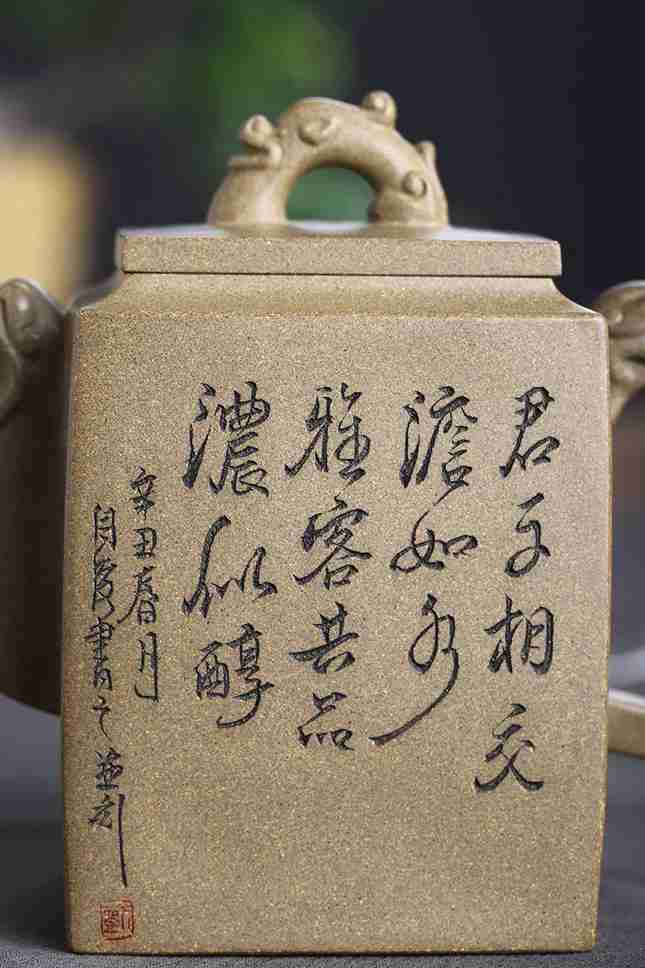 君子相交
澹如水
雅客共品
濃似醇
辛丑春月
書之並刻